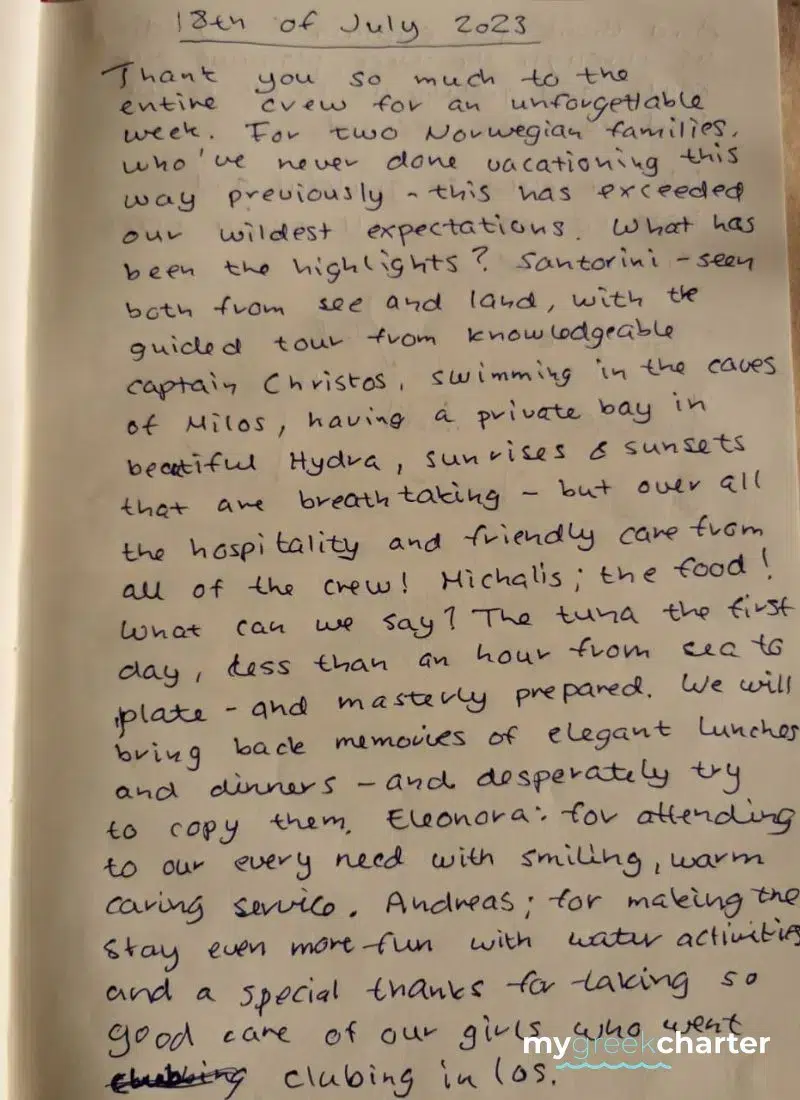 18th of July 2023
Thank you so much to the
entire crew for an unforgettable
week. For two Norwegian families,
who've never done vacationing this
way previously - this has exceeded
our wildest expectations. What has
been the highlights? Santorini - seen
both from see and land, with the
guided tour from knowledgeable
captain Christos, swimming in the caves
of Milos, having a private bay in
beautiful Hydra, sunrises & sunsets
that are breathtaking - but over all
the hospitality and friendly care from
all of the crew! Michalis; the food!
What can we say? The tuna the first
day, less than an hour from sea to
plate - and masterly prepared. We will
bring back memories of elegant lunches
and dinners - and desperately try
to copy them. Eleonora: for attending
to our every need with smiling, warm
caring service. Andreas; for making the
stay even more fun with water activities
and a special thanks for taking so
good care of our girls who went
clubing in Ios.
mygreekcharter